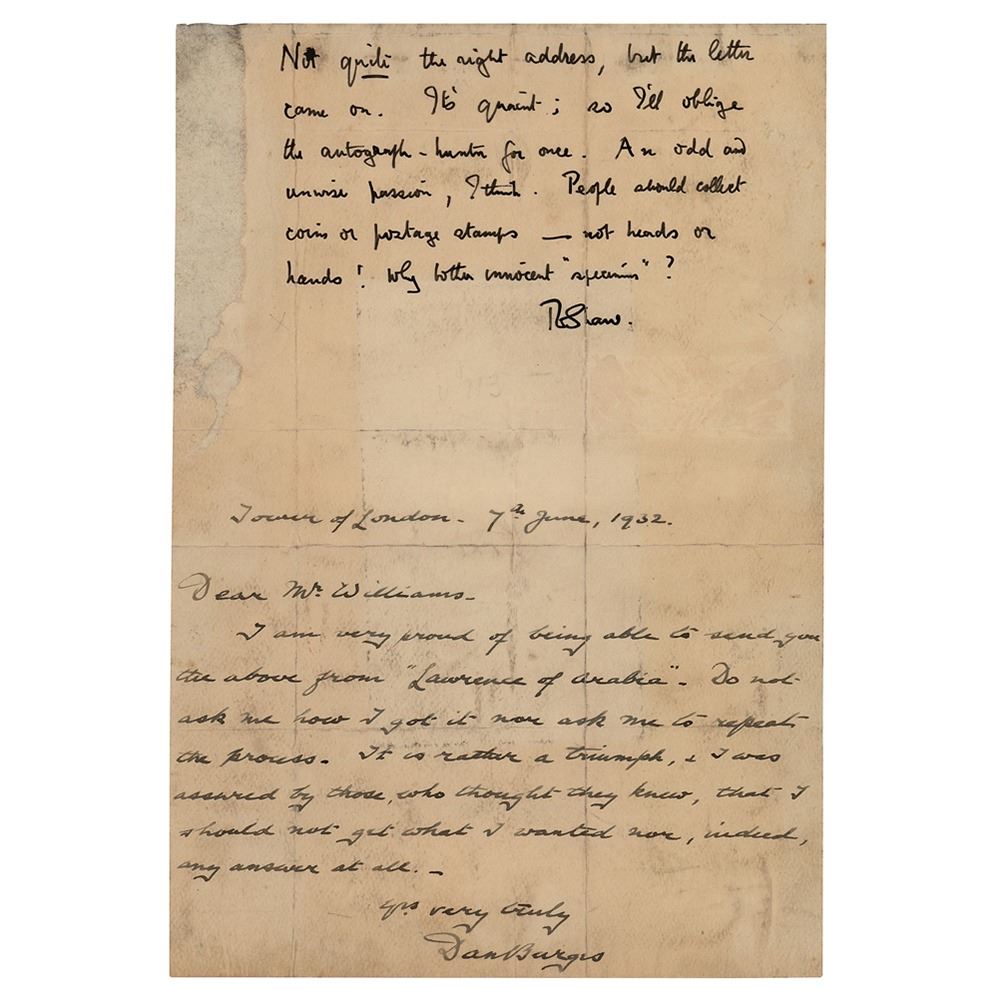 Not quite the right address, but the letter
came on. It's quaint; so I'll oblige
the autograph-hunter for once. An odd and
unwise passion, I think. People should collect
coins or postage stamps — not heads or
hands! Why bother innocent "specimens"?
TEShaw.
Tower of London. 7th June, 1932.
Dear Mr. Williams.
I am very proud of being able to send you
the above from "Lawrence of Arabia". Do not
ask me how I got it nor ask me to repeat
the process. It is rather a triumph, & I was
assured by those, who thought they knew, that I
should not get what I wanted nor, indeed,
any answer at all. —
Yrs very truly
Dan Burges